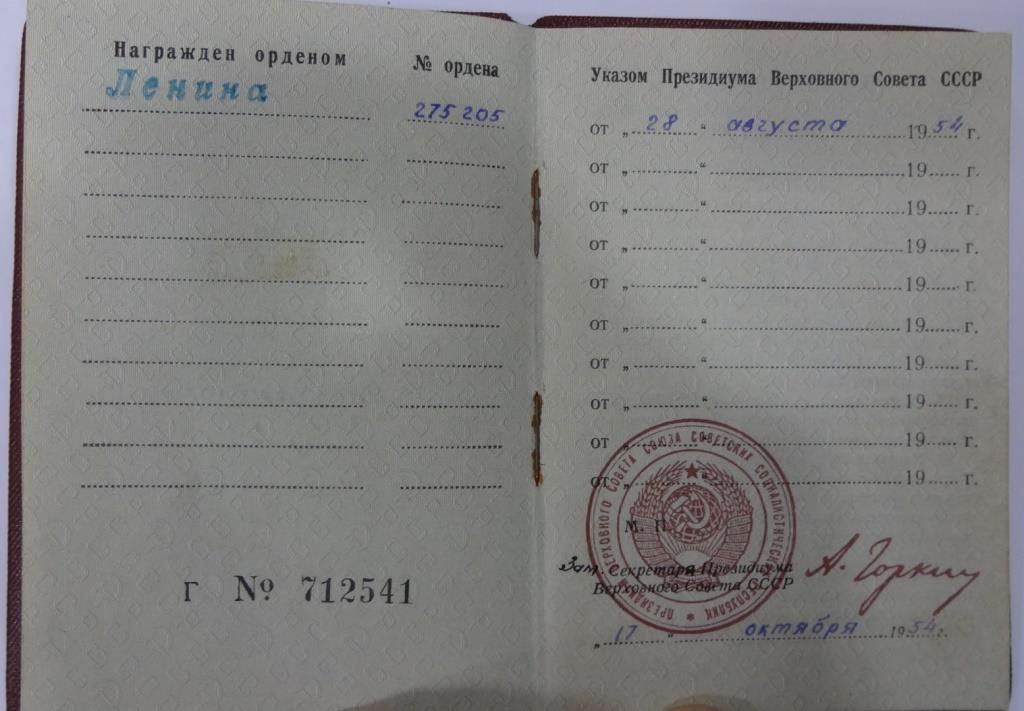 Награжден орденом № ордена
Ленина 275 205
Г № 712541
Указом Президиума Верховного Совета СССР
от „28“ августа 1954 г.
от „ “ 19 г.
от „ “ 19 г.
от „ “ 19 г.
от „ “ 19 г.
от „ “ 19 г.
от „ “ 19 г.
от „ “ 19 г.
от „ “ 19 г.
от „ “ 19 г.
ПРЕЗИДИУМ ВЕРХОВНОГО СОВЕТА СОЮЗА СОВЕТСКИХ СОЦИАЛИСТИЧЕСКИХ РЕСПУБЛИК
М. П.
Зам. Секретаря Президиума
Верховного Совета СССР
А. Горкин
„17“ октября 1954 г.